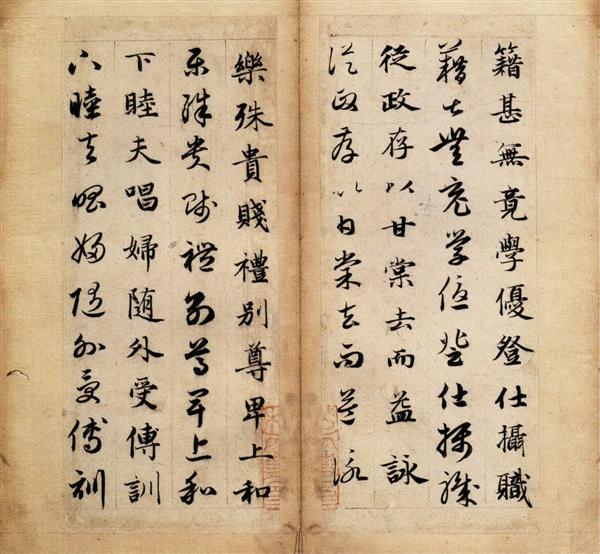 籍甚無竟學優登仕攝職
籍甚無竟学優登仕攝職
從政存以甘棠去而益詠
從政存以甘棠去而益詠
樂殊貴賤禮別尊卑上和
樂殊貴賤禮別尊卑上和
下睦夫唱婦随外受傅訓
下睦夫唱婦随外受傅訓